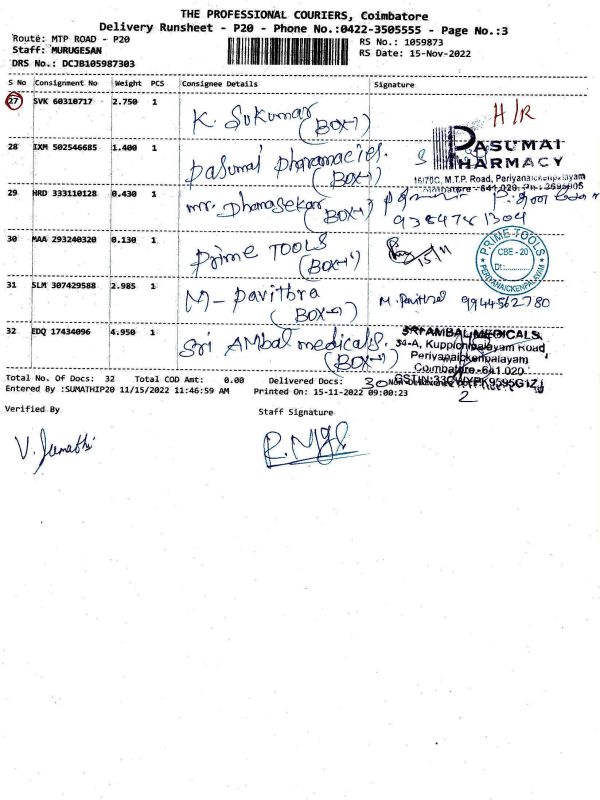 THE PROFESSIONAL COURIERS, Coimbatore
Delivery Runsheet - P20 - Phone No.:0422-3505555 - Page No.:3
Route: MTP ROAD - P20
RS No.: 1059873
Staff: MURUGESAN
RS Date: 15-Nov-2022
DRS No.: DCJB105987303
S No Consignment No Weight PCS Consignee Details Signature
27 SVK 60310717 2.750 1 K. Sukumar (BOX-1) H/R
28 IXM 502546685 1.400 1 Pasumai Pharmacies. (BOX-1)
PASUMAI PHARMACY
16/70C, M.T.P. Road, Periyanaickenpalayam
Coimbatore - 641 020.
29 HRD 333110128 0.430 1 Mr. Dhanasekar (BOX-1)
9384781304
30 MAA 293240320 0.130 1 Prime TOOLS (BOX-1) 15/11
PRIME TOOLS
CBE - 20
Dt:
PERIYANAICKENPALAYAM
31 SLM 307429588 2.985 1 M- Pavithra (BOX-1) M. Pavithra 9944562780
32 EDQ 17434096 4.950 1 Sri AMbal medicals. (BOX-1)
SRI AMBAL MEDICALS,
34-A, Kuppichipalayam Road
Periyanaickenpalayam
Coimbatore-641 020
Total No. Of Docs: 32 Total COD Amt: 0.00 Delivered Docs: 30
2
Entered By :SUMATHIP20 11/15/2022 11:46:59 AM Printed On: 15-11-2022 09:00:23
Verified By Staff Signature
V. Sumathi